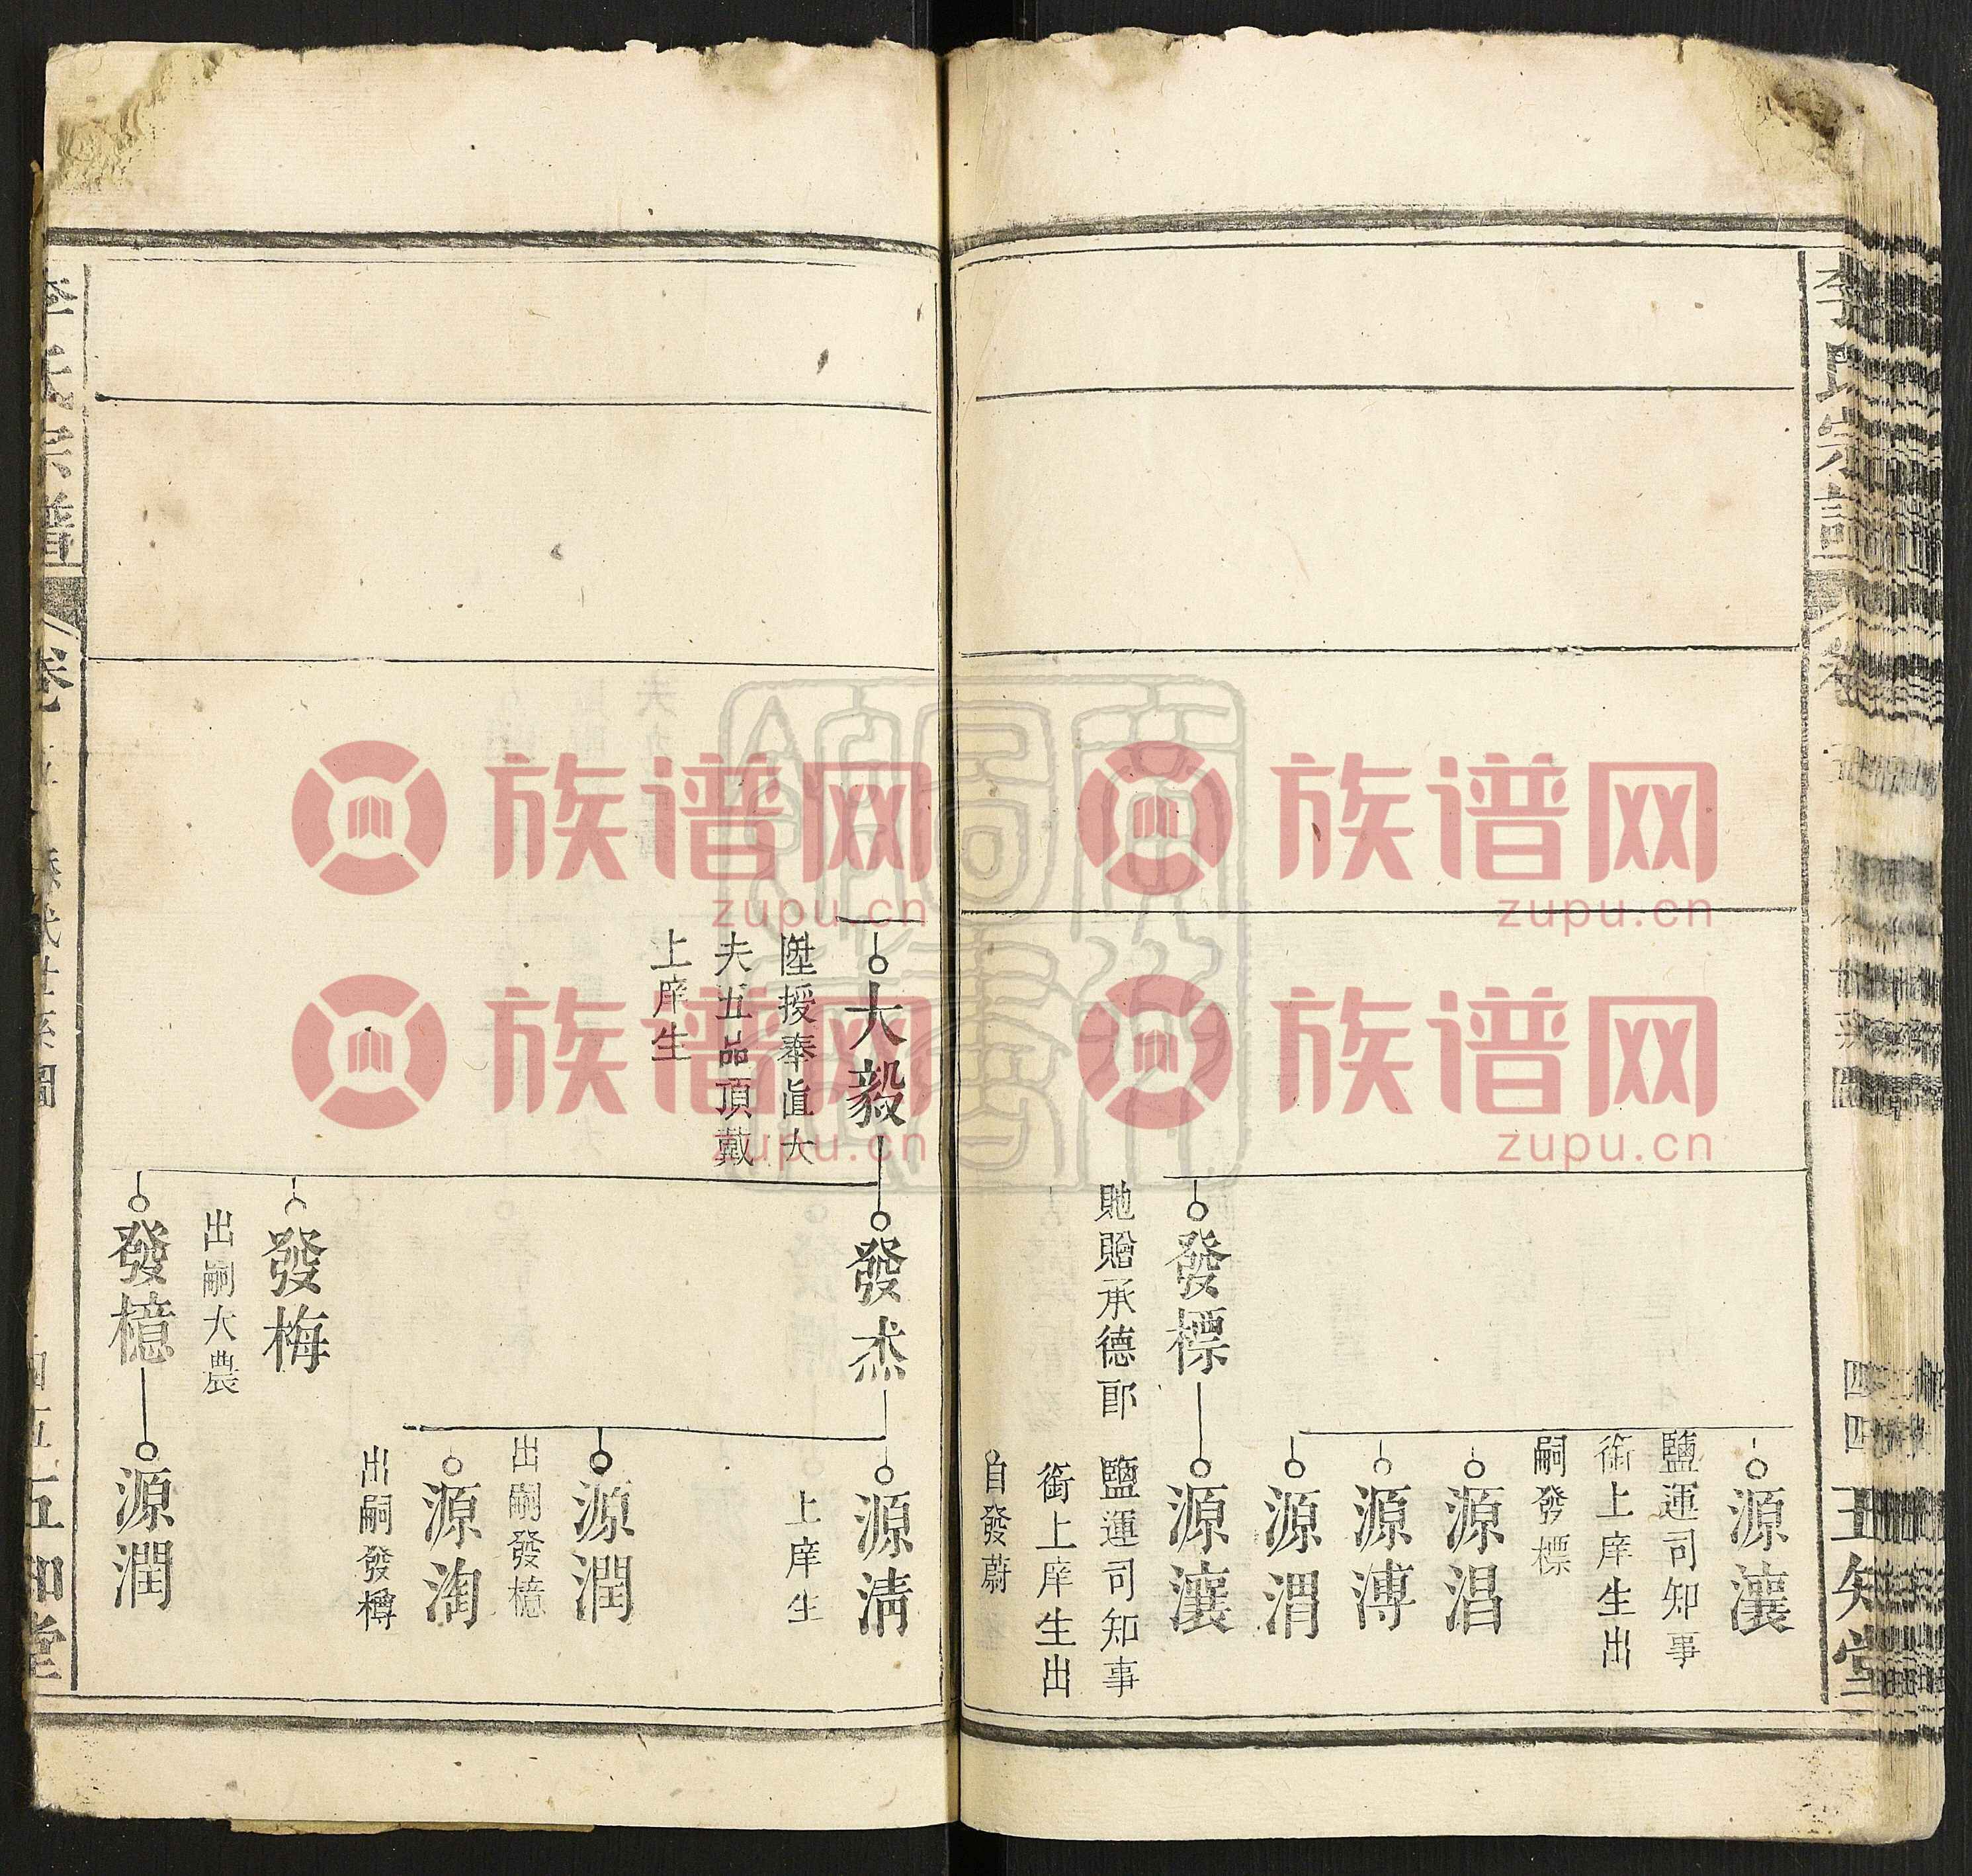 李氏宗譜
卷
五
四四
五知堂
源瀼
鹽運司知事
銜上庠生出
嗣發標
源淐
源溥
源渭
發標
貤贈承德郎
源瀼
鹽運司知事
銜上庠生出
自發蔚
大毅
陞授奉直大
夫五品頂戴
上庠生
發杰
源淸
上庠生
源潤
出嗣發檍
源淘
出嗣發樽
發梅
出嗣大農
發檍
源潤
李氏宗譜
卷
歷代世系圖
四五
五知堂
族谱网
zupu.cn
族谱网
zupu.cn
族谱网
zupu.cn
族谱网
zupu.cn